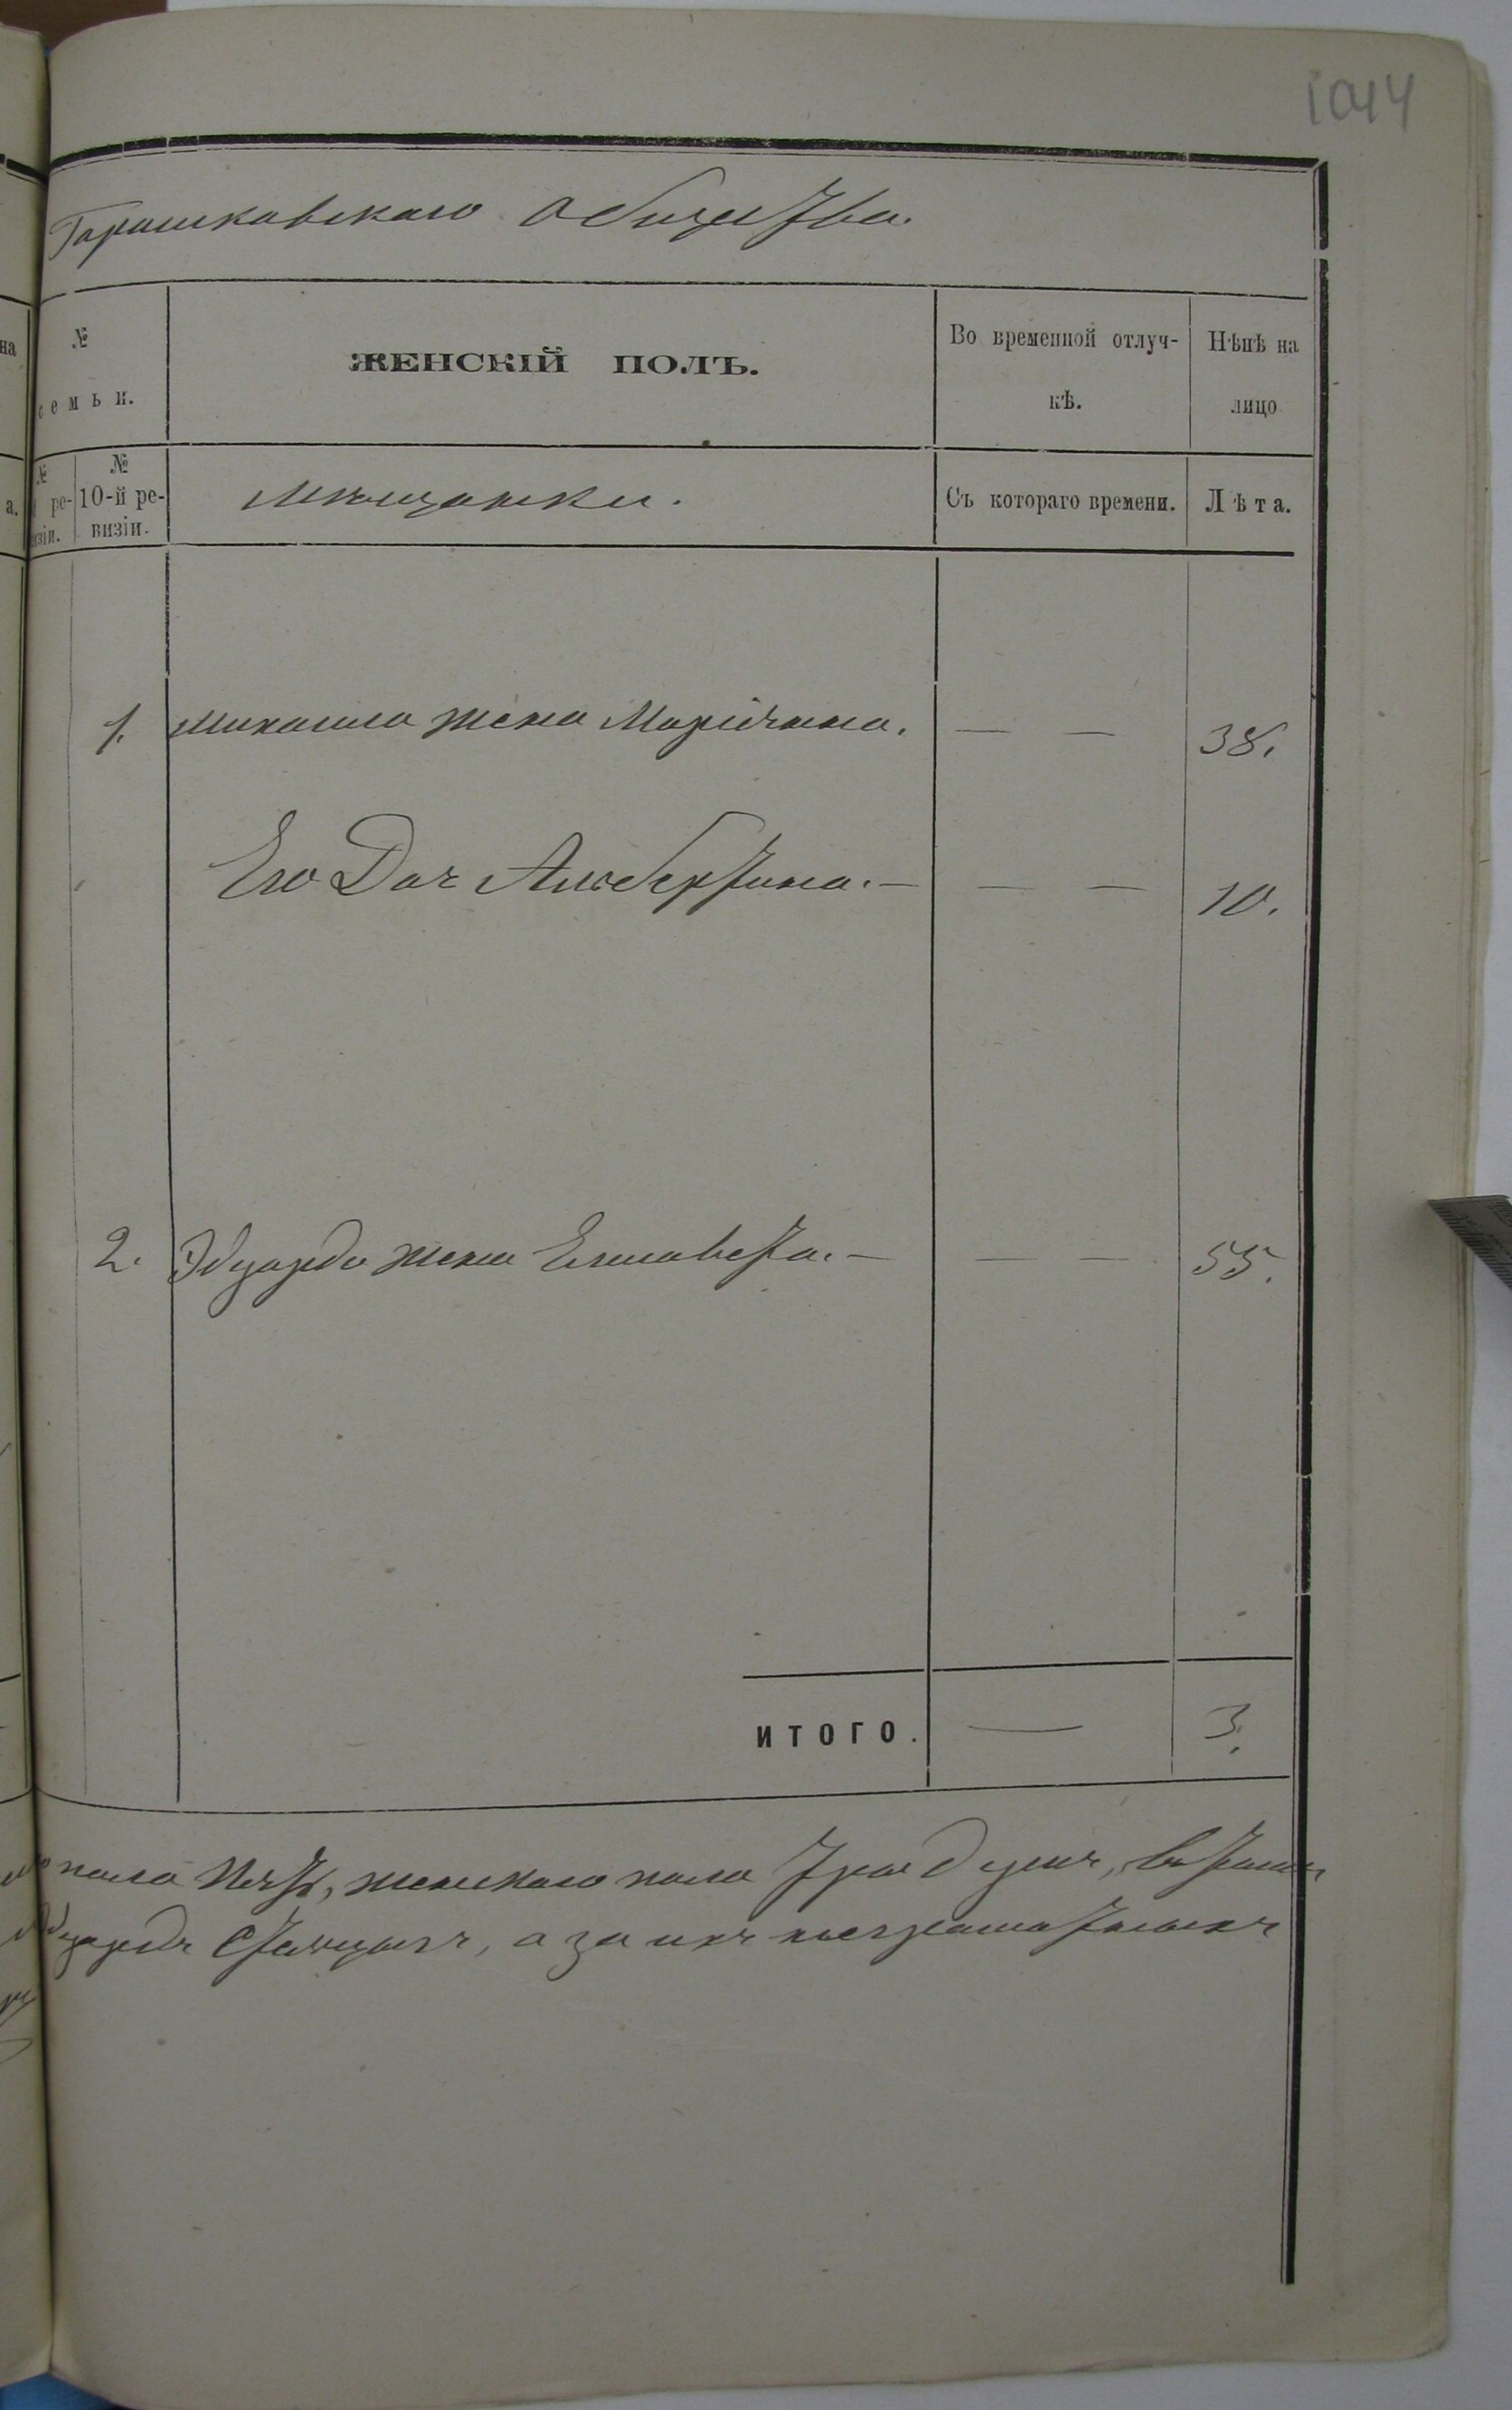 1044
Горошковскаго Общества.
№
семьи.
ЖЕНСКІЙ ПОЛЪ.
Во временной отлуч-
кѣ.
Нѣпѣ на
лицо
на
№
ре-
візіи.
№
10-й ре-
визіи.
Мѣщанки.
Съ котораго времени.
Лѣта.
а.
1. Михаила жена Марiанна. — — 38.
Его Доч Альбертина. — — — 10.
2. Эдуарда жена Елисавета. — — — 55.
ИТОГО. — 3.
пола пять, женскаго пола три души,
Эдуардъ а за ихъ неграмотныхъ